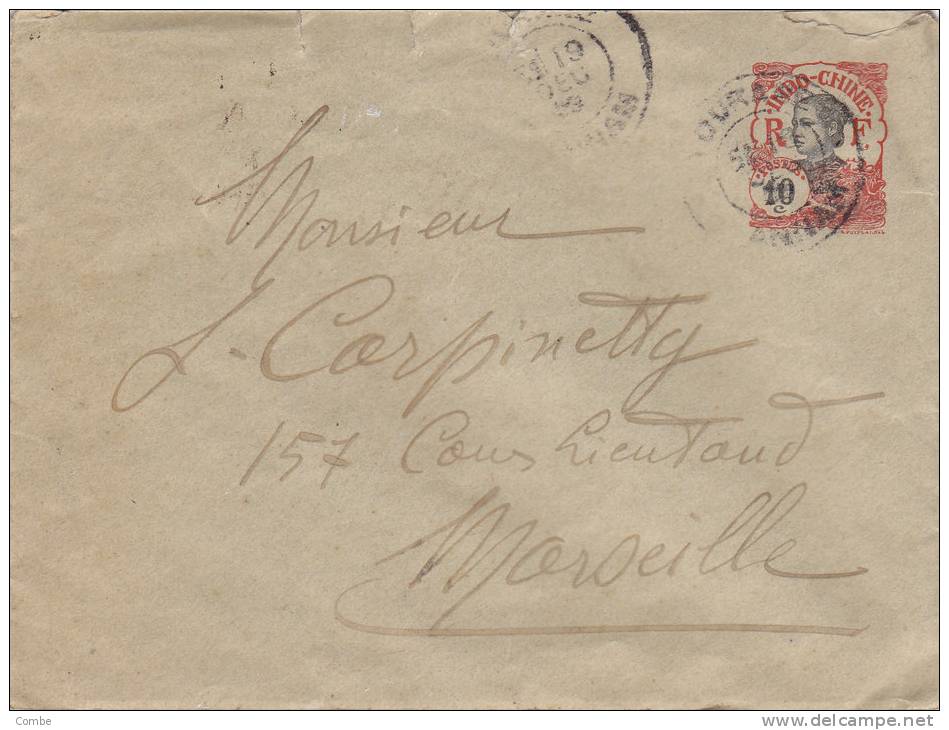 INDO-CHINE
R F
POSTES
10
c
TOURANE
ANNAM
Monsieur
L. Carpinetty
157 Cours Lieutaud
Marseille
Combe
www.delcampe.net